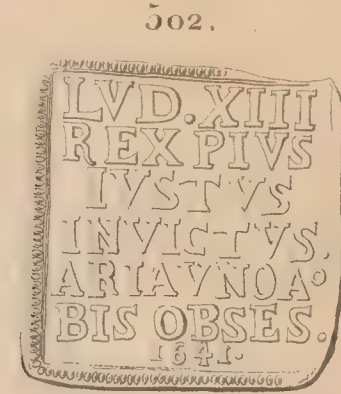 502.
LVD. XIII
REX PIVS
IVSTVS
INVICTVS.
ARIAVNOAº
BIS OBSES.
1641.